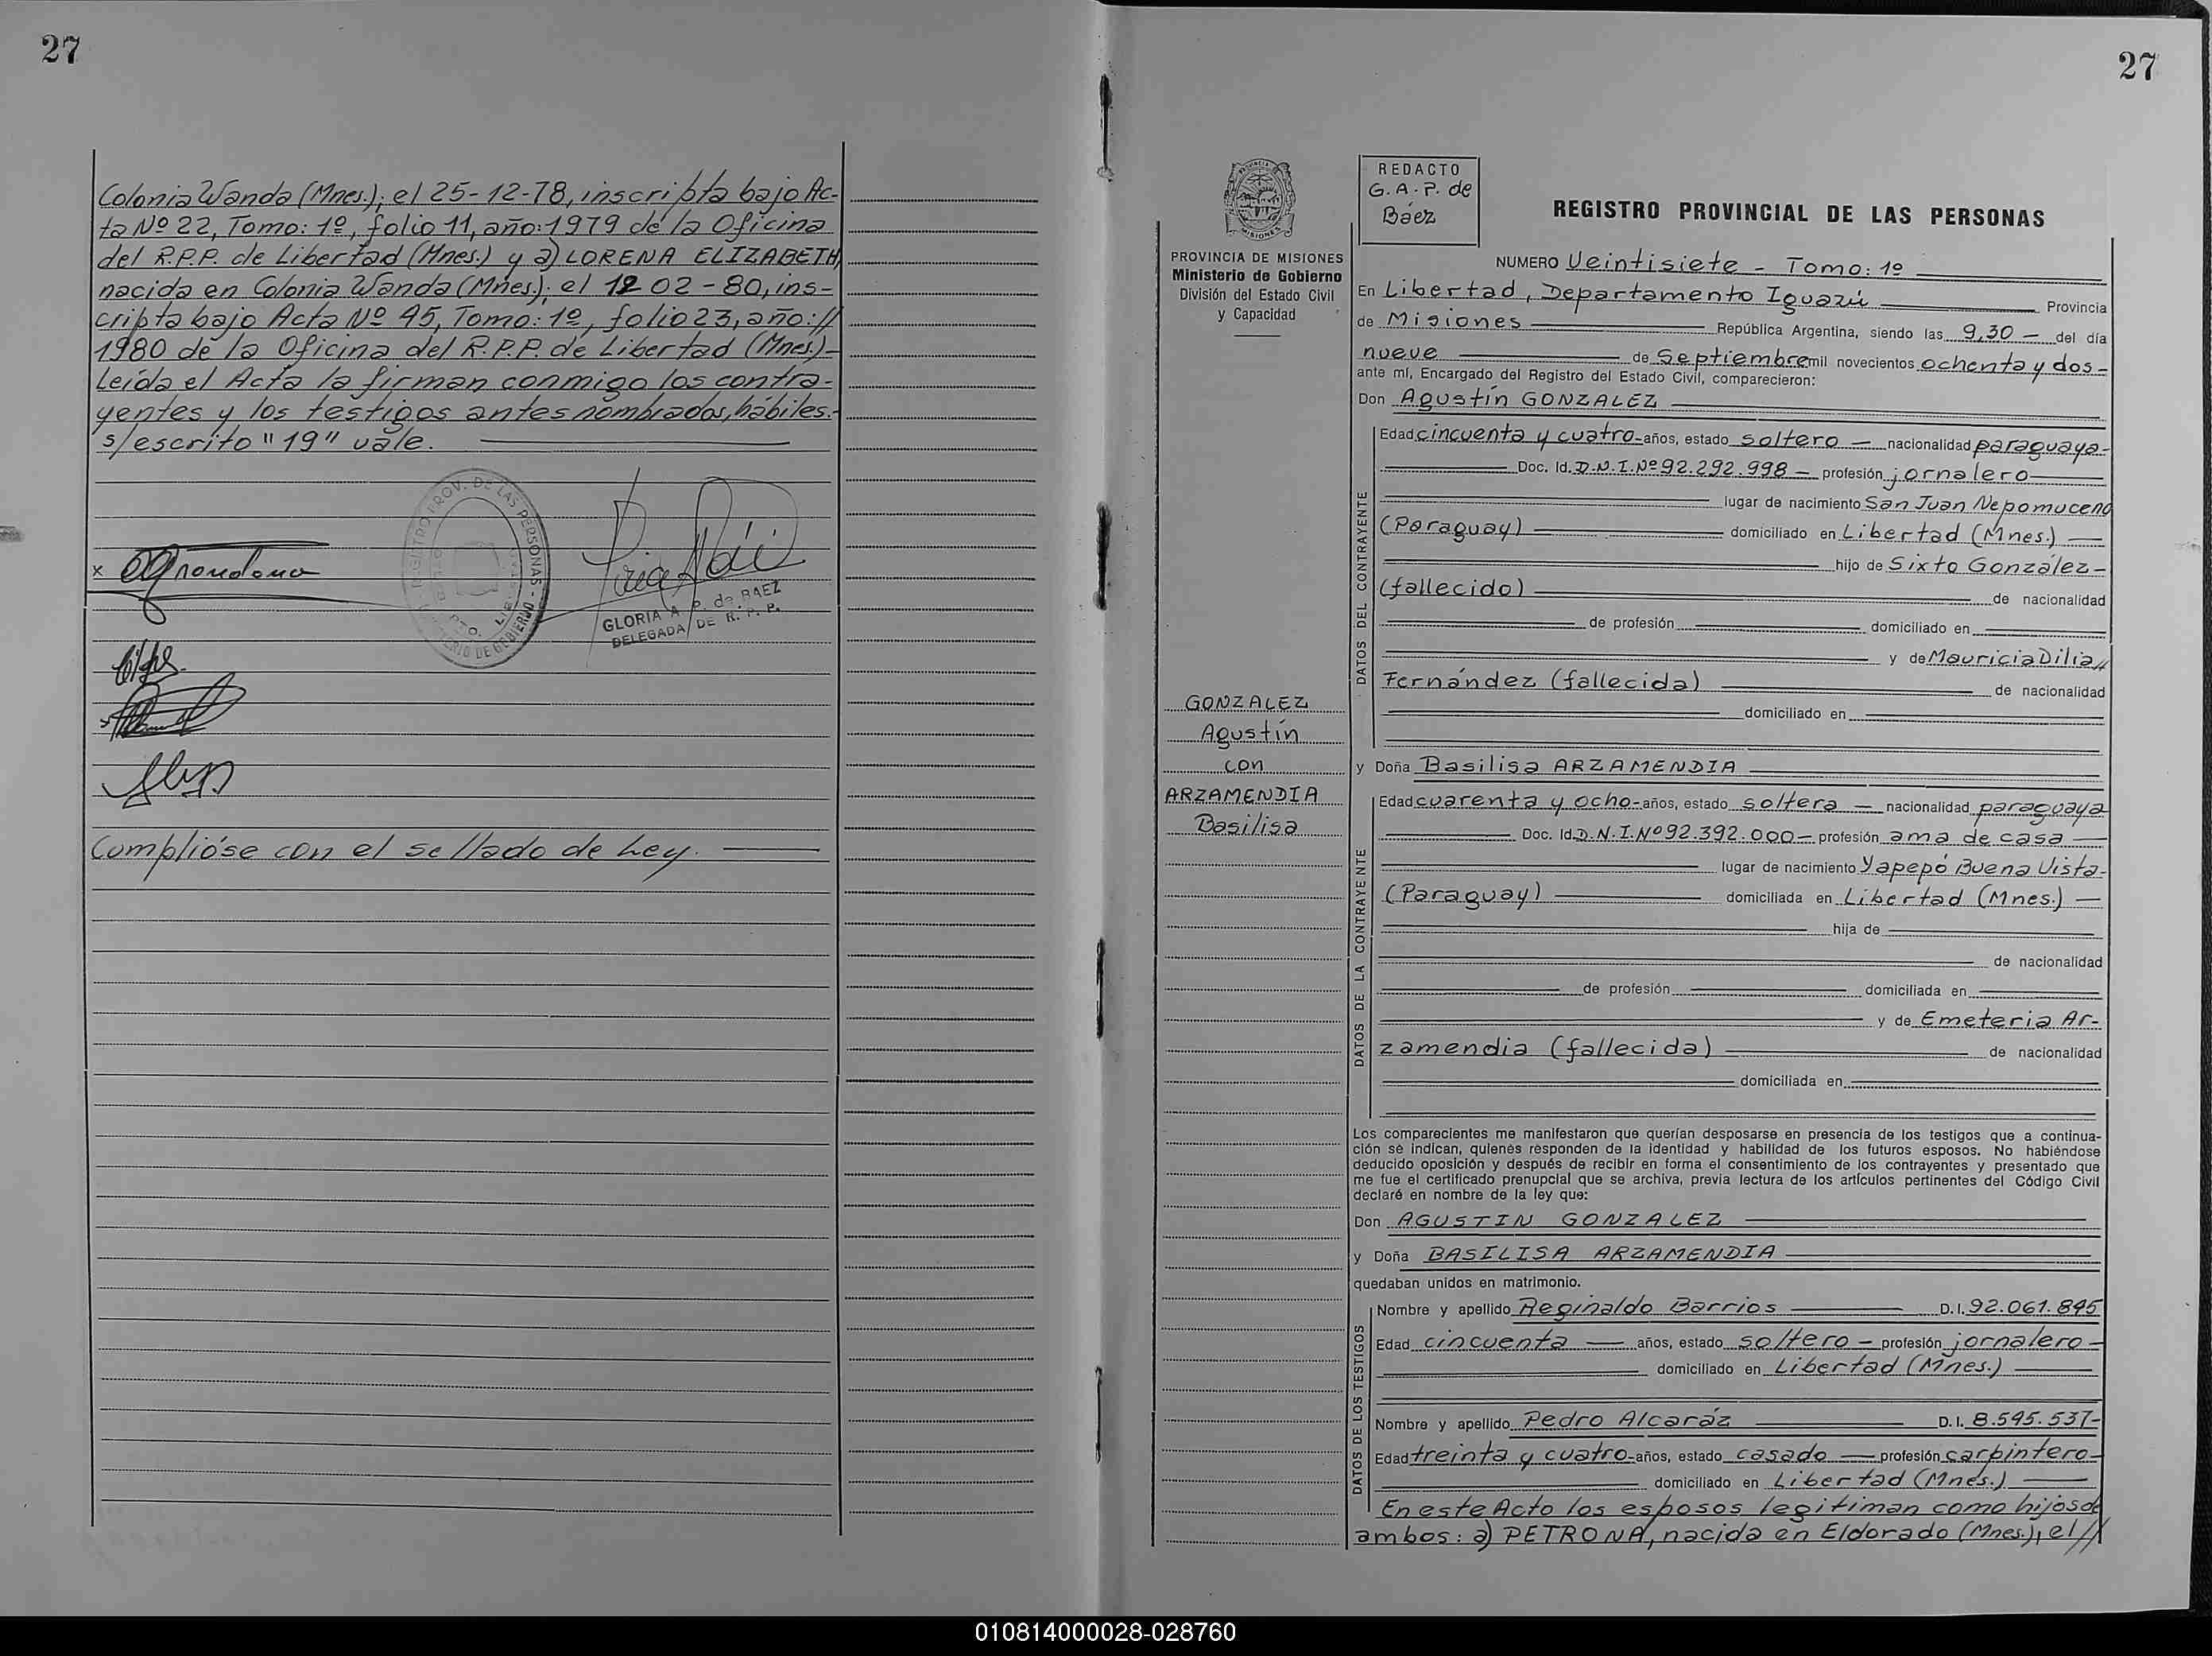 27
Colonia Wanda (Mnes.); el 25-12-78, inscripta bajo Ac-
ta Nº 22, Tomo: 1º, folio 11, año: 1979 de la Oficina
del R.P.P. de Libertad (Mnes.) y a) LORENA ELIZABETH,
nacida en Colonia Wanda (Mnes.); el 12 02-80, ins-
cripta bajo Acta Nº 45, Tomo: 1º, folio 23, año://
1980 de la Oficina del R.P.P. de Libertad (Mnes.)-
Leída el Acta la firman conmigo los contra-
yentes y los testigos antes nombrados, hábiles.-
s/escrito "19" vale.
x
GLORIA A. P. de BAEZ
DELEGADA DE R. P. P.
Cumplióse con el sellado de Ley.
27
REDACTO
G. A. P. de
Báez
PROVINCIA DE MISIONES
Ministerio de Gobierno
División del Estado Civil
y Capacidad
REGISTRO PROVINCIAL DE LAS PERSONAS
NUMERO Veintisiete - Tomo: 1º
En Libertad, Departamento Iguazú Provincia
de Misiones República Argentina, siendo las 9,30 - del día
nueve de Septiembre mil novecientos ochenta y dos-
ante mí, Encargado del Registro del Estado Civil, comparecieron:
Don Agustín GONZALEZ
DATOS DEL CONTRAYENTE
Edad cincuenta y cuatro- años, estado soltero - nacionalidad paraguaya-
Doc. Id. D.N.I. Nº 92.292.998 - profesión jornalero
lugar de nacimiento San Juan Nepomuceno
(Paraguay) domiciliado en Libertad (Mnes.)
hijo de Sixto González-
(fallecido) de nacionalidad
de profesión domiciliado en
y de Mauricia Dilia//
Fernández (fallecida) de nacionalidad
domiciliado en
GONZALEZ
Agustín
con
ARZAMENDIA
Basilisa
y Doña Basilisa ARZAMENDIA
DATOS DE LA CONTRAYENTE
Edad cuarenta y ocho- años, estado soltera - nacionalidad paraguaya
Doc. Id. D.N.I. Nº 92.392.000- profesión ama de casa
lugar de nacimiento Yapepó Buena Vista-
(Paraguay) domiciliada en Libertad (Mnes.)
hija de
de nacionalidad
de profesión domiciliada en
y de Emeteria Ar-
zamendia (fallecida) de nacionalidad
domiciliada en
Los comparecientes me manifestaron que querían desposarse en presencia de los testigos que a continua-
ción se indican, quienes responden de la identidad y habilidad de los futuros esposos. No habiéndose
deducido oposición y después de recibir en forma el consentimiento de los contrayentes y presentado que
me fue el certificado prenupcial que se archiva, previa lectura de los artículos pertinentes del Código Civil
declaré en nombre de la ley que:
Don AGUSTIN GONZALEZ
y Doña BASILISA ARZAMENDIA
quedaban unidos en matrimonio.
DATOS DE LOS TESTIGOS
Nombre y apellido Reginaldo Barrios D.I. 92.061.845
Edad cincuenta años, estado soltero - profesión jornalero-
domiciliado en Libertad (Mnes.)
Nombre y apellido Pedro Alcaráz D.I. 8.545.537-
Edad treinta y cuatro- años, estado casado profesión carpintero-
domiciliado en Libertad (Mnes.)
En este Acto los esposos legitiman como hijos de
ambos: a) PETRONA, nacida en Eldorado (Mnes.), el//
010814000028-028760